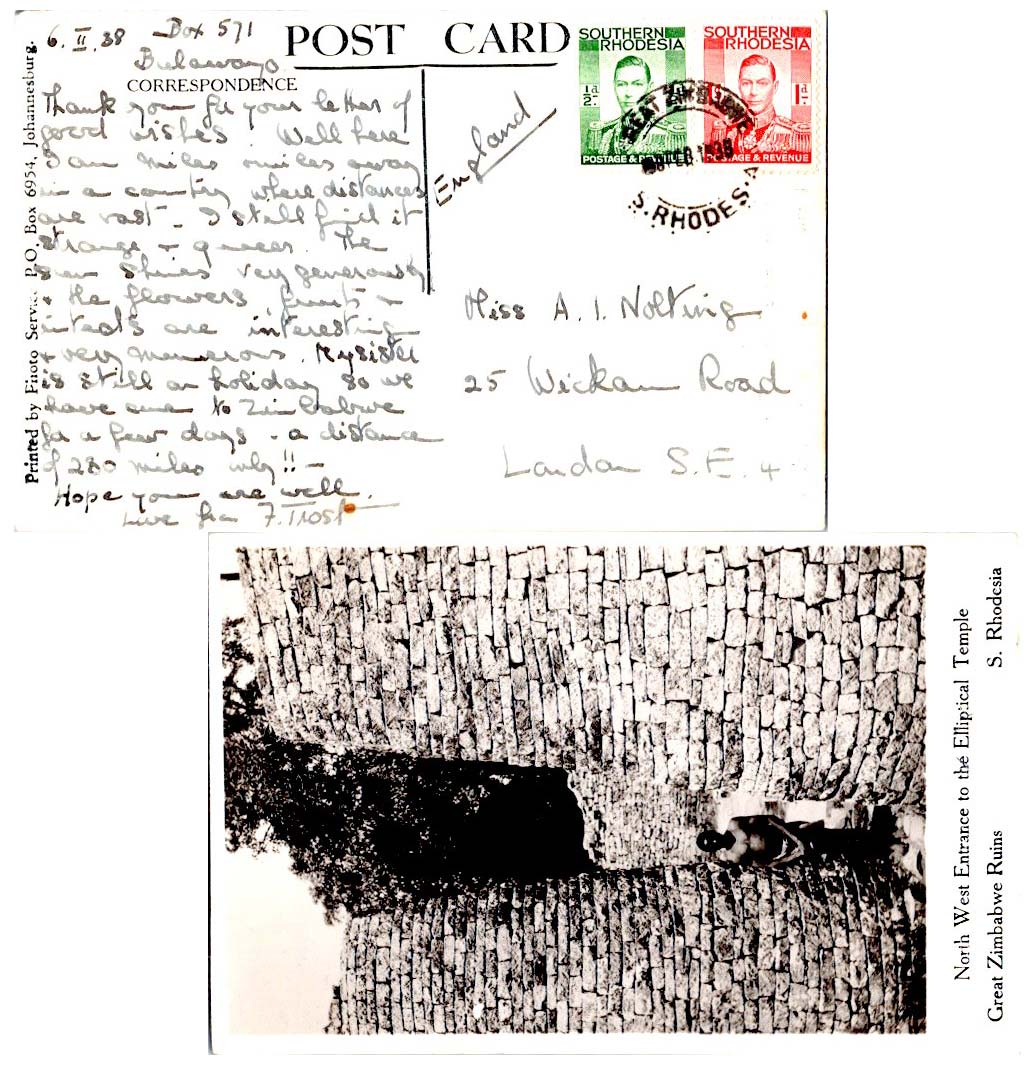 6.II.38 Box 571
Bulawayo
POST CARD
CORRESPONDENCE
Thank you for your letter of
good wishes. Well here
I am miles & miles away
in a country where distances
are vast - I still find it
strange + queer. The
sun shines very generously
+ the flowers fruit +
insects are interesting
+ very numerous. My sister
is still on holiday so we
have come to Zimbabwe
for a few days - a distance
of 280 miles only!! -
Hope you are well.
Love from F. Trost
Printed by Photo Service P.O. Box 6954, Johannesburg.
England
SOUTHERN
RHODESIA
½d
POSTAGE & REVENUE
SOUTHERN
RHODESIA
1d
POSTAGE & REVENUE
GREAT ZIMBABWE
FEB 1938
S. RHODESIA
Miss A. I. Nolting
25 Wickam Road
London S.E. 4
North West Entrance to the Elliptical Temple
Great Zimbabwe Ruins S. Rhodesia